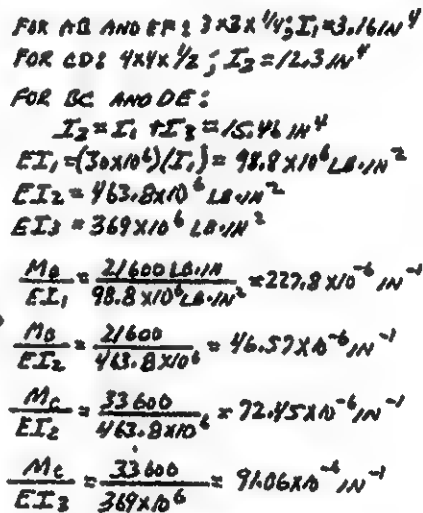 FOR AB AND EF: 3×3×1/4; I₁=3.16 IN⁴
FOR CD: 4×4×1/2; I₃=12.3 IN⁴
FOR BC AND DE:
I₂=I₁+I₃=15.46 IN⁴
EI₁=(30×10⁶)(I₁)=98.8×10⁶ LB·IN²
EI₂=463.8×10⁶ LB·IN²
EI₃=369×10⁶ LB·IN²
M_B/EI₁ = 21600 LB·IN/98.8×10⁶ LB·IN² = 227.8×10⁻⁶ IN⁻¹
M_B/EI₂ = 21600/463.8×10⁶ = 46.57×10⁻⁶ IN⁻¹
M_C/EI₂ = 33600/463.8×10⁶ = 72.45×10⁻⁶ IN⁻¹
M_C/EI₃ = 33600/369×10⁶ = 91.06×10⁻⁶ IN⁻¹